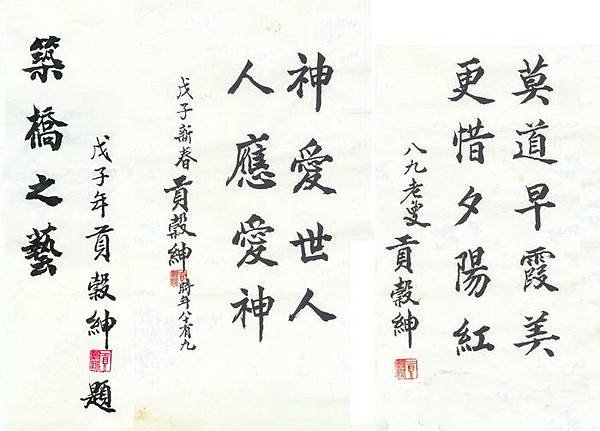 莫道早霞美
更惜夕陽紅
八九老叟貢穀紳
神愛世人
人應愛神
戊子新春貢穀紳時年八十有九
築橋之藝
戊子年貢穀紳題